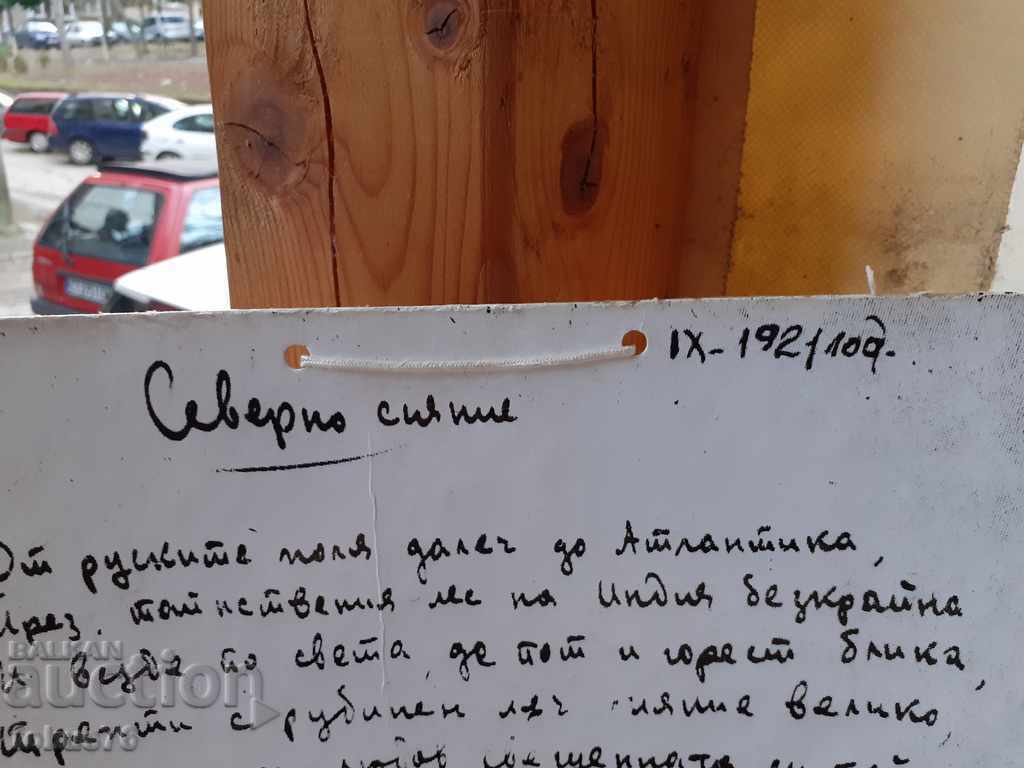 IX-1921 год.
Северно сияние
От руските поля далеч до Атлантика,
През тайнствения лес на Индия безкрайна
И везде по света, де пот и горест блика,
Трепти с рубинен леч сияние велико,
BALKAN
auction